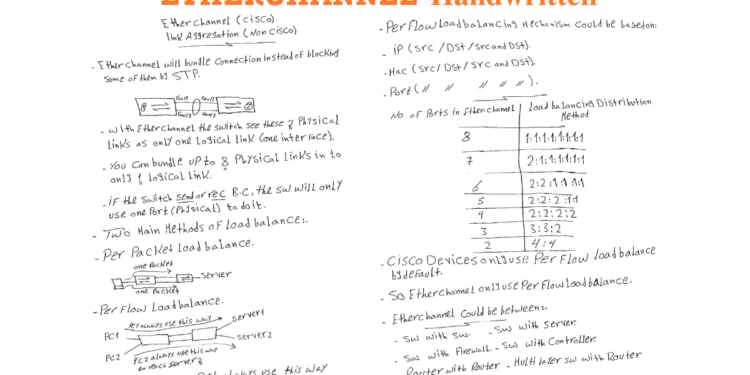 ETHERCHANNEL Handwritten
Etherchannel (cisco)
link Aggregation (Non Cisco)
- Etherchannel will bundle Connection instead of blocking
Some of them by STP.
Fa0/1 Fa0/1
Fa0/2 Fa0/2
- with Etherchannel the switch see these 2 Physical
links as only one Logical link (one interface).
- You Can bundle up to 8 Physical Links in to
only 1 Logical link.
- if the Switch send or rec B.C, the SW will only
use one Port (Physical) to do it.
- Two Main Methods of Load balance:.
- Per Packet Load balance.
one Packet
Server
one Packet
- Per Flow Load balance.
PC1 always use this way
PC1
Server1
Server2
PC2
PC2 always use this way
to reach Server2
always use this way
- Per Flow Load balancing Mechanism Could be based on:
- iP (Src / Dst / Src and Dst).
- Mac (Src / Dst / Src and Dst).
- Port ( // // // // // ).
No of Ports in Etherchannel | Load balancing Distribution
Method
8 1:1:1:1:1:1:1:1
7 2:1:1:1:1:1:1
6 2:2:1:1:1:1
5 2:2:2:1:1
4 2:2:2:2
3 3:3:2
2 4:4
- Cisco Devices only use Per Flow Load balance
by default.
- So Etherchannel only use Per Flow Load balance.
- Etherchannel Could be between:.
- SW with SW. - SW with Server.
- SW with Firewall - SW with Controller.
Router with Router - Multi layer SW with Router